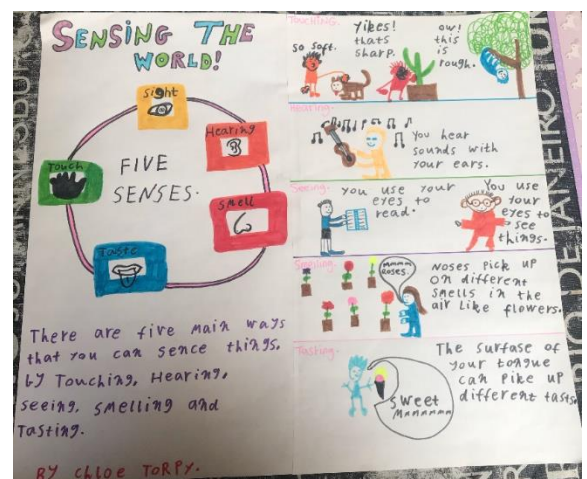 SENSING THE
WORLD!
Sight
Hearing
Smell
Taste
Touch
FIVE
SENSES.
There are five main ways
that you can sence things,
by Touching, Hearing,
seeing, smelling and
Tasting.
BY Chloe TORPY.
Touching.
so soft.
Yikes!
thats
sharp.
ow!
this
is
rough.
Hearing.
You hear
sounds with
your ears.
Seeing.
You use your
eyes to
read.
You use
your
eyes to
see
things.
Smelling.
mmmm
Roses.
Noses pick up
on different
smells in the
air like flowers.
Tasting.
sweet
Mmmmmmm
The surface of
your tongue
can pike up
different tasts.